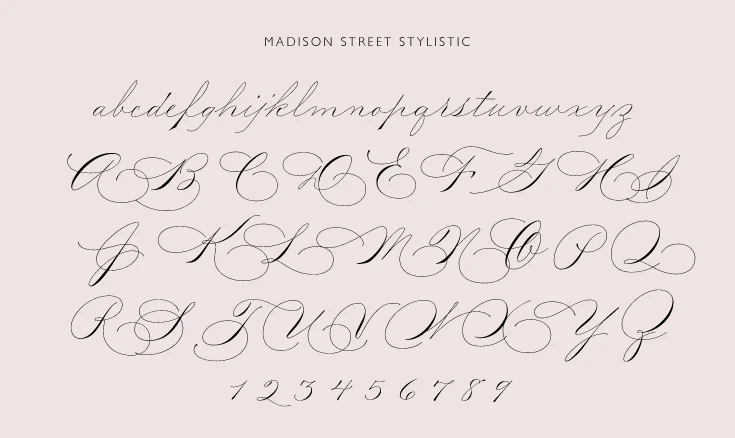 MADISON STREET STYLISTIC
abcdefghijklmnopqrstuvwxyz
ABCDEFGHI
JKLMNOPQ
RSTUVWXYZ
123456789